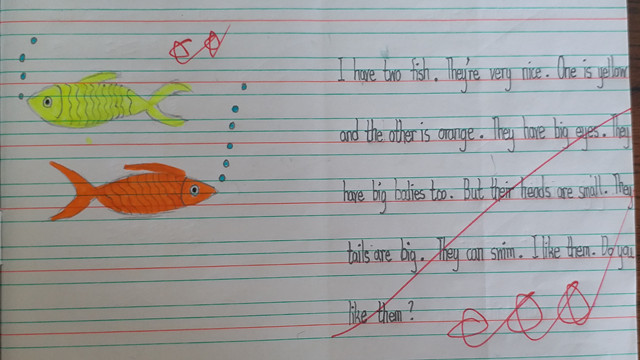 I have two fish. They're very nice. One is yellow
and the other is orange. They have big eyes. They
have big bodies too. But their heads are small. They
tails are big. They can swim. I like them. Do you
like them?